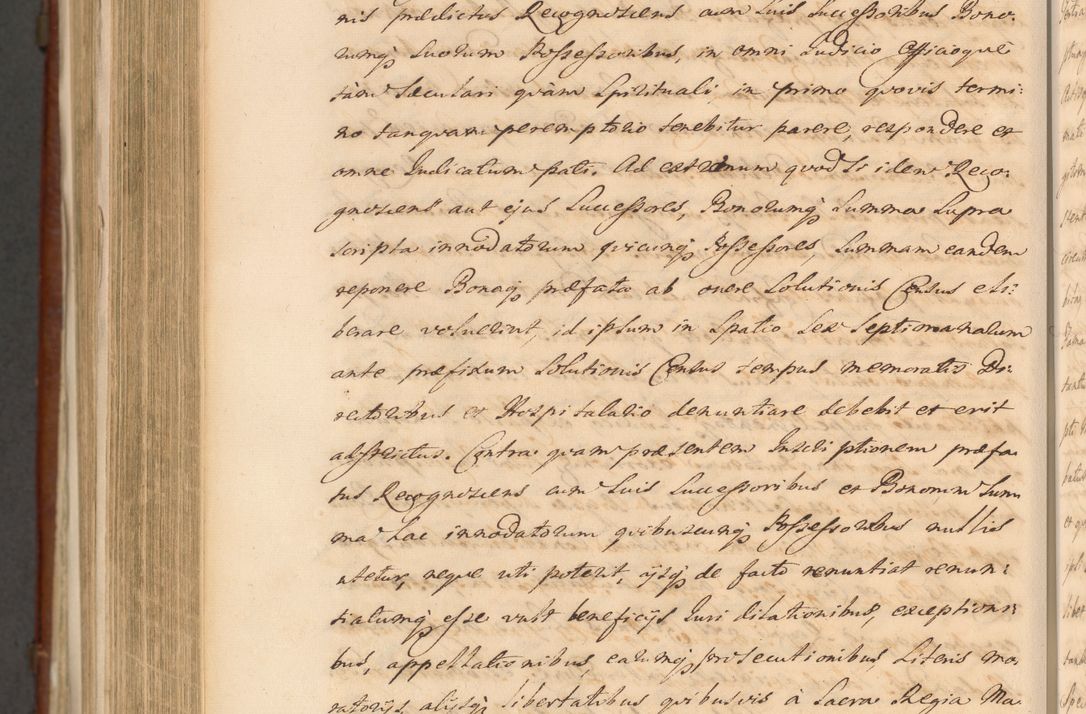 nis prædictus Recognoscens cum suis Successoribus Bono-
rumq suorum Possessoribus, in omni Judicio Officioque
tàm Sæculari quàm Spirituali, in primo quovis termi:
no tanquam peremptorio tenebitur parere, respondere et
omne Judicatum pati. Ad extremum quod si idem Reco-
gnoscens aut ejus Successores, Bonorumq Summa supra
scripta innodatorum quicunq Possessores, Summam eandem
reponere Bonaq præfata ab onere Solutionis Census eli:
berare voluerint, id ipsum in spatio Sex Septimanarum
ante præfixum Solutionis Census tempus memoratis Di:
rectoribus et Hospitalario denuntiare debebit et erit
adstrictus. Contra quam præsentem Inscriptionem præfa-
tus Recognoscens cum suis Successoribus et Bonorum Sum
ma hac innodatorum quibuscunq Possessoribus nullis
utetur, neque uti poterit, ijsq de facto renuntiat renun:
tiatumq esse vult beneficijs Juri dilationibus, exceptioni:
bus, appellationibus, earumq prosecutionibus, Literis mo-
ratorijs alijsq libertatibus quibusvis à Sacra Regia Ma-